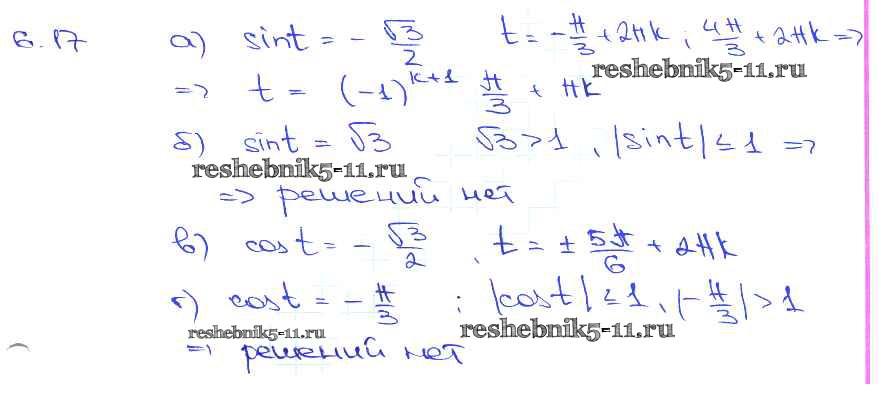 6.17 а) sint = - √3/2 t = - π/3 + 2πk ; 4π/3 + 2πk =>
reshebnik5-11.ru
=> t = (-1)^(k+1) π/3 + πk
б) sint = √3 √3 > 1 , |sint| ≤ 1 =>
reshebnik5-11.ru
=> решений нет
в) cost = - √3/2 , t = ± 5π/6 + 2πk
г) cost = - π/3 ; |cost| ≤ 1 , |- π/3| > 1
reshebnik5-11.ru reshebnik5-11.ru
=> решений нет